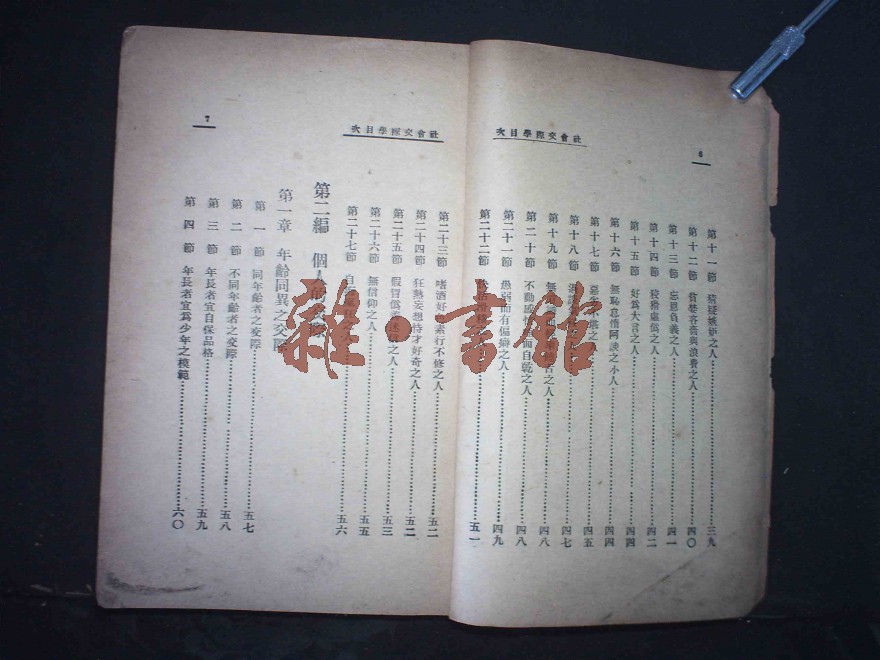 6
社會交際學目次
第十一節 猜疑嫉妒之人 三九
第十二節 貪婪吝嗇與浪費之人 四〇
第十三節 忘恩負義之人 四一
第十四節 狡猾虛僞之人 四二
第十五節 好爲大言之人 四四
第十六節 無恥怠惰阿諛之小人 四四
第十七節 之人 四五
第十八節 四七
第十九節 無 之人 四八
第二十節 不動感情 面自乾之人 四八
第二十一節 愚弱而有偏癖之人 四九
第二十二節 之人 五一
社會交際學目次
7
第二十三節 嗜酒好 素行不修之人 五二
第二十四節 狂熱妄想恃才好奇之人 五二
第二十五節 假冒僞善迷 之人 五三
第二十六節 無信仰之人 五五
第二十七節 自 之人 五六
第二編 個人的交際
第一章 年齡同異之交際
第一節 同年齡者之交際 五七
第二節 不同年齡者之交際 五八
第三節 年長者宜自保品格 五九
第四節 年長者宜爲少年之模範 六〇
雜·書館